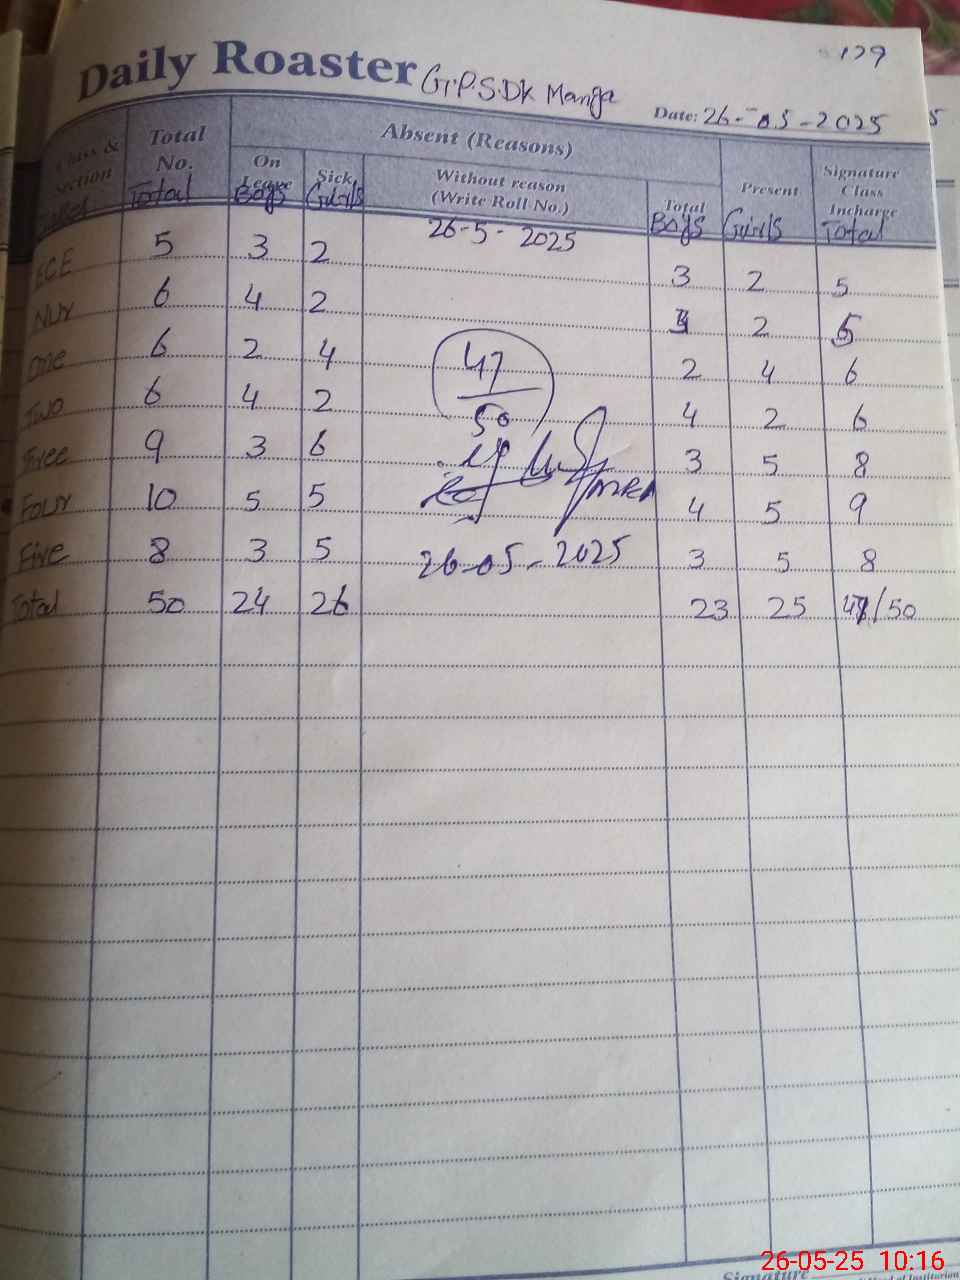 129
Daily Roaster G.P.S.Dk Manga
Date: 26-05-2025
Class & Section Total No. Absent (Reasons) Present Signature Class Incharge
On Leave Sick Without reason (Write Roll No.) Total
Total Boys Girls Boys Girls Total
26-5-2025
ECE 5 3 2 3 2 5
Nur 6 4 2 2
One 6 2 4 2 4 6
Two 6 4 2 4 2 6
Free 9 3 6 3 5 8
Four 10 5 5 4 5 9
Five 8 3 5 3 5 8
Total 50 24 26 23 25 /50
47
50
26-05-2025
Signature
26-05-25 10:16